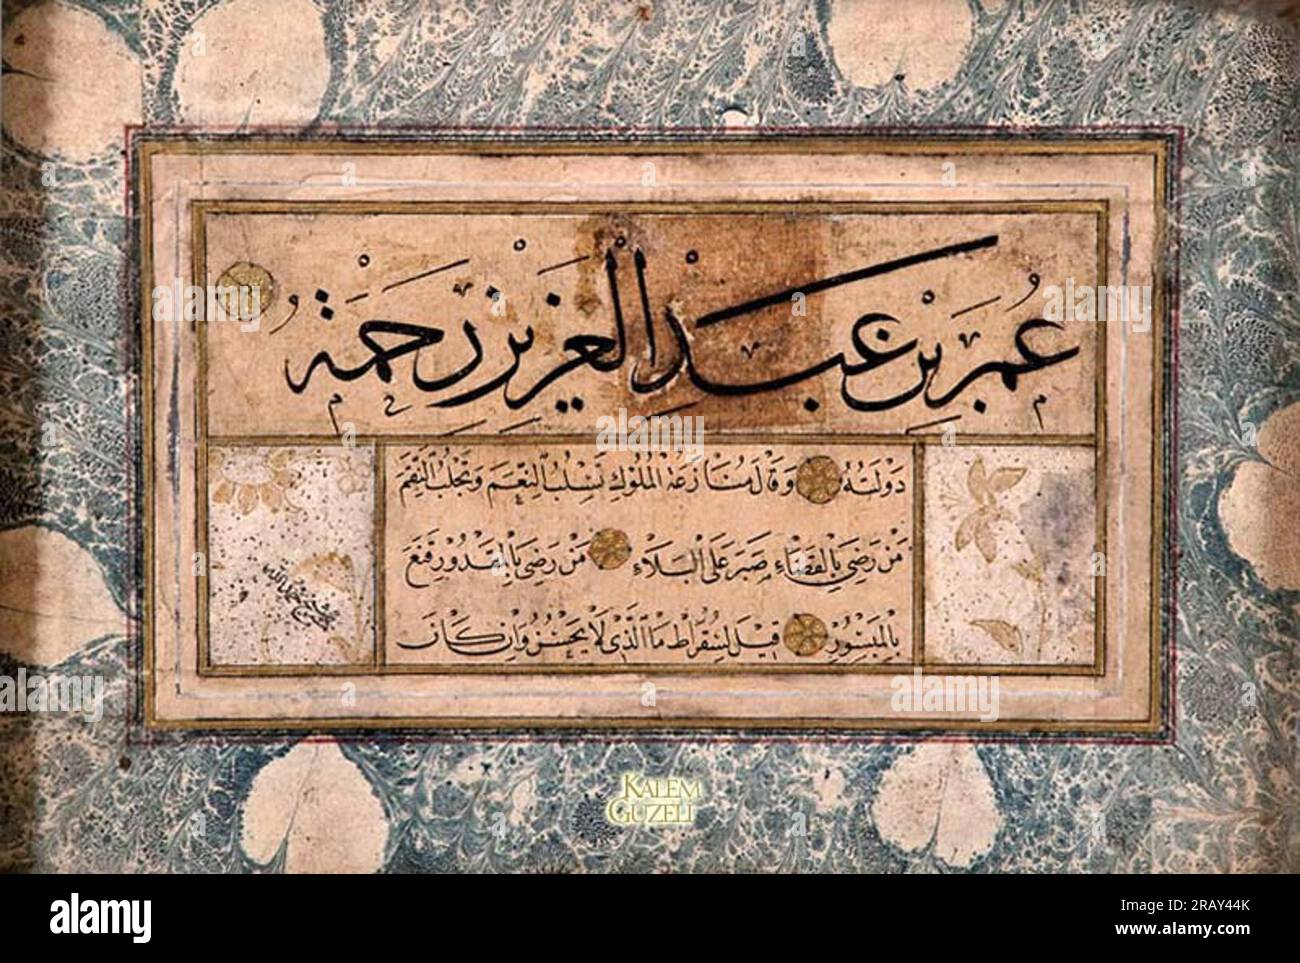 عُمَر بْن عَبْد الْعَزِيزِ رَحْمَة
دَوْلَتهُ وَقَالَ مُنَازَعَةُ الْمُلُوكِ تَسْلُبُ النِّعَمَ وَتَجْلِبُ النِّقَمَ
مَنْ رَضِيَ بِالْقَضَاءِ صَبَرَ عَلَى الْبَلَاءِ مَنْ رَضِيَ بِالْمَقْدُورِ قَنَعَ
بِالْمَيْسُورِ قِيلَ لِسُقْرَاط مَا الَّذِي لَا يَحْسُنُ وَإِنْ كَانَ
KALEM
GUZELI
alamy
Image ID: 2RAY44K
www.alamy.com